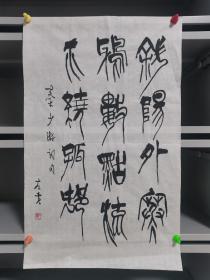 斜陽外寒
鴉數點流
水繞孤邨
秦少游詞句